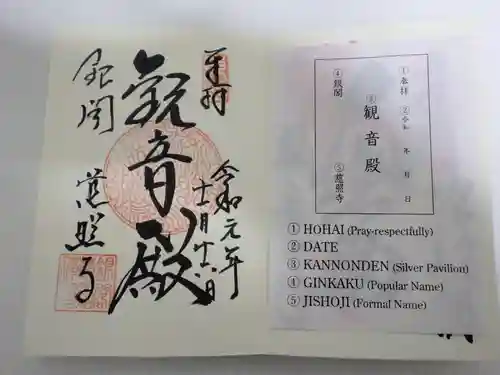 奉拝
令和元年
十一月廿六日
観音殿
銀閣
慈照寺
①奉拝
②令和 年 月 日
③観音殿
④銀閣
⑤慈照寺
① HOHAI (Pray-respectfully)
② DATE
③ KANNONDEN (Silver Pavilion)
④ GINKAKU (Popular Name)
⑤ JISHOJI (Formal Name)